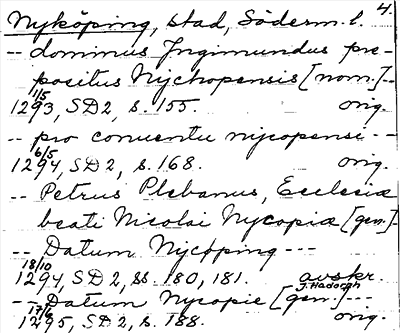 4.
Nyköping, stad, Söderm. l.
-- dominus Jngimundus pre-
positus Nychopensis [nom.]--
1/5
1293, SD2, s. 155. orig.
-- pro conuentu nycopensi --
6/5
1294, SD2, s. 168. orig.
-- Petrus Plebanus, Ecclesiæ
beati Nicolai Nycopiæ [gen.]-
-- Datum Nycöping ---
18/10
1294, SD2, ss. 180, 181. avskr.
J. Hadorph
-- Datum Nycopie [gen.]---
17/6
1295, SD2, s. 188. orig.